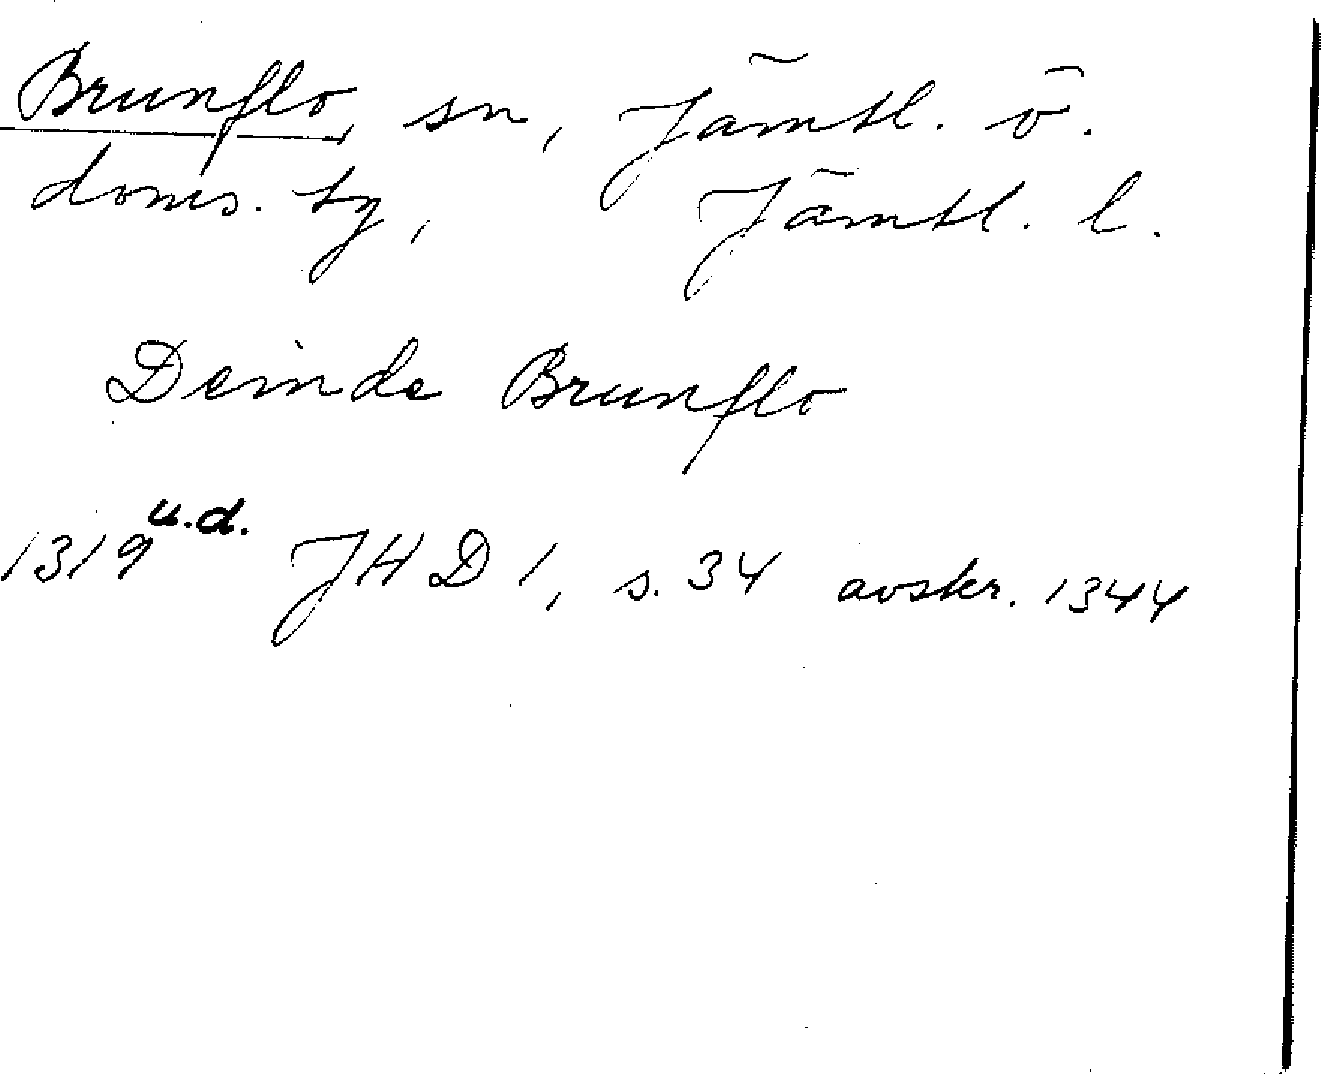 Brunflo, sn, Jämtl. ö.
doms. tg, Jämtl. l.
Deinde Brunflo
1319 u.d. JHD 1, s. 34 avskr. 1344